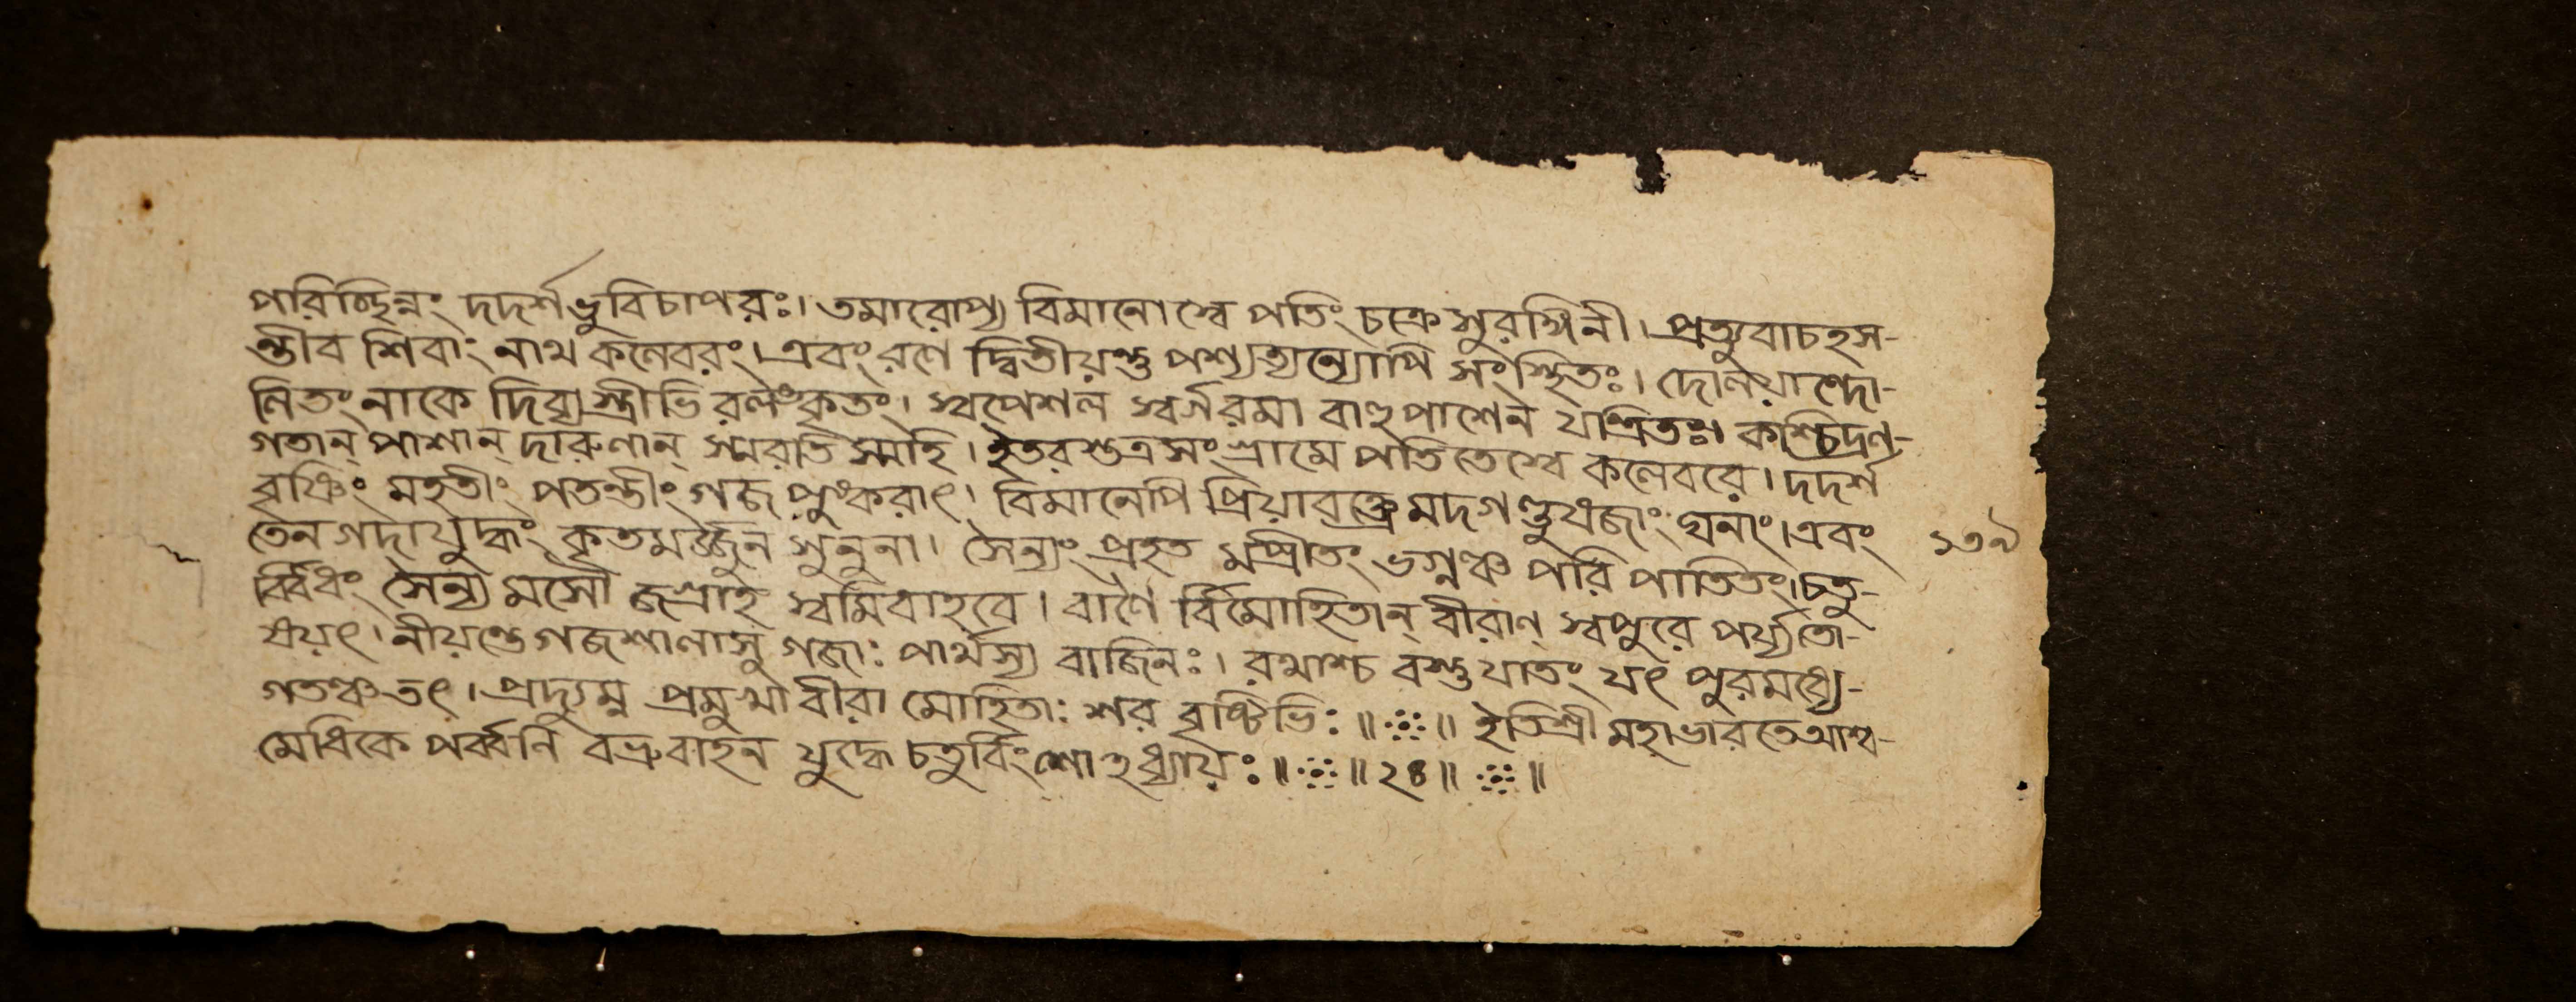 পরিচ্ছিন্নং দদর্শভুবিচাপরঃ। তমারোপ্য বিমানোশ্বে পতিং চক্রেসুরঙ্গিনী। প্রত্যুবাচহস-
ন্তীব শিবাং নাথ কলেবরং। এবং রণে দ্বিতীয়ন্তু পশ্যত্যন্যোপি সংস্থিতঃ। দোলয়ান্দো-
লিতং নাকে দিব্যস্ত্রীভি রলংকৃতং। স্বপেশল স্বর্গরমা বাহুপাশেন যন্ত্রিতঃ। কশ্চিদ্রণ-
গতান্ পাশান্ দারুণান্ স্মরতি স্মহি। ইতরস্তত্রসংগ্রামে পতিতেশ্বে কলেবরে। দদর্শ
বৃষ্টিং মহতীং পতন্তীং গজপুংকরাৎ। বিমানেপি প্রিয়াবক্ত্রে মদগণ্ডুষজাং ঘনাং। এবং
তেন গদাযুদ্ধং কৃতমর্জ্জুন সুনুনা। সৈন্যং প্রহত মপ্রীতং ভগ্নঞ্চ পরি পাতিতং। চতু-
র্ব্বিধং সৈন্য মসৌ জগ্রাহ স্বমিবাহবে। বাণৈ র্বিমোহিতান্ বীরাণ্ স্বপুরে পর্য্যতো-
ষয়ৎ। নীয়ন্তে গজশালাসু গজাঃ পার্থস্য বাজিনঃ। রথাশ্চ বস্তুযাতং যৎ পুরমধ্যে-
গতঞ্চ তৎ। প্রদ্যুম্ন প্রমুখা বীরা মোহিতাঃ শর বৃষ্টিভিঃ॥ ॥ ইতিশ্রী মহাভারতেআশ্ব-
মেধিকে পর্ব্বনি বভ্রুবাহন যুদ্ধে চতুর্বিংশোঽধ্যায়ঃ॥ ॥ ২৪॥ ॥
১৩৯